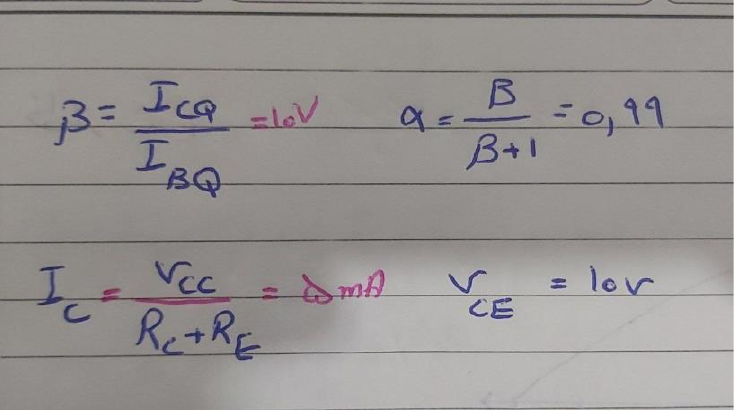 β = I_CQ / I_BQ = ۱۰۷    α = β / β+1 = 0,99
I_C = V_CC / R_C+R_E = ۵mA    V_CE = 10v